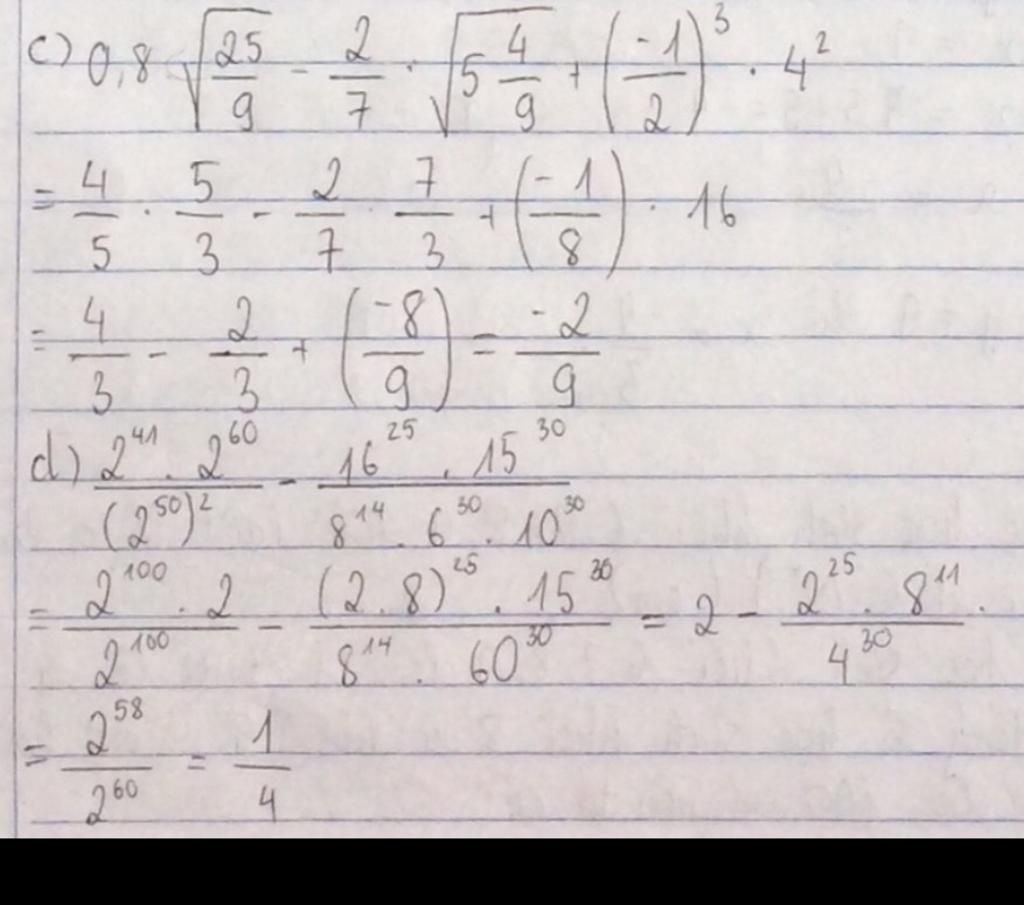 c) 0,8 √(25/9) - 2/7 · √(5 4/9) + (-1/2)³ · 4²
= 4/5 · 5/3 - 2/7 · 7/3 + (-1/8) · 16
= 4/3 - 2/3 + (-8/9) = -2/9
d) (2⁴¹ · 2⁶⁰)/(2⁵⁰)² - (16²⁵ · 15³⁰)/(8¹⁴ · 6³⁰ · 10³⁰)
= (2¹⁰⁰ · 2)/2¹⁰⁰ - ((2 · 8)²⁵ · 15³⁰)/(8¹⁴ · 60³⁰) = 2 - (2²⁵ · 8¹¹)/4³⁰ ·
= 2⁵⁸/2⁶⁰ = 1/4